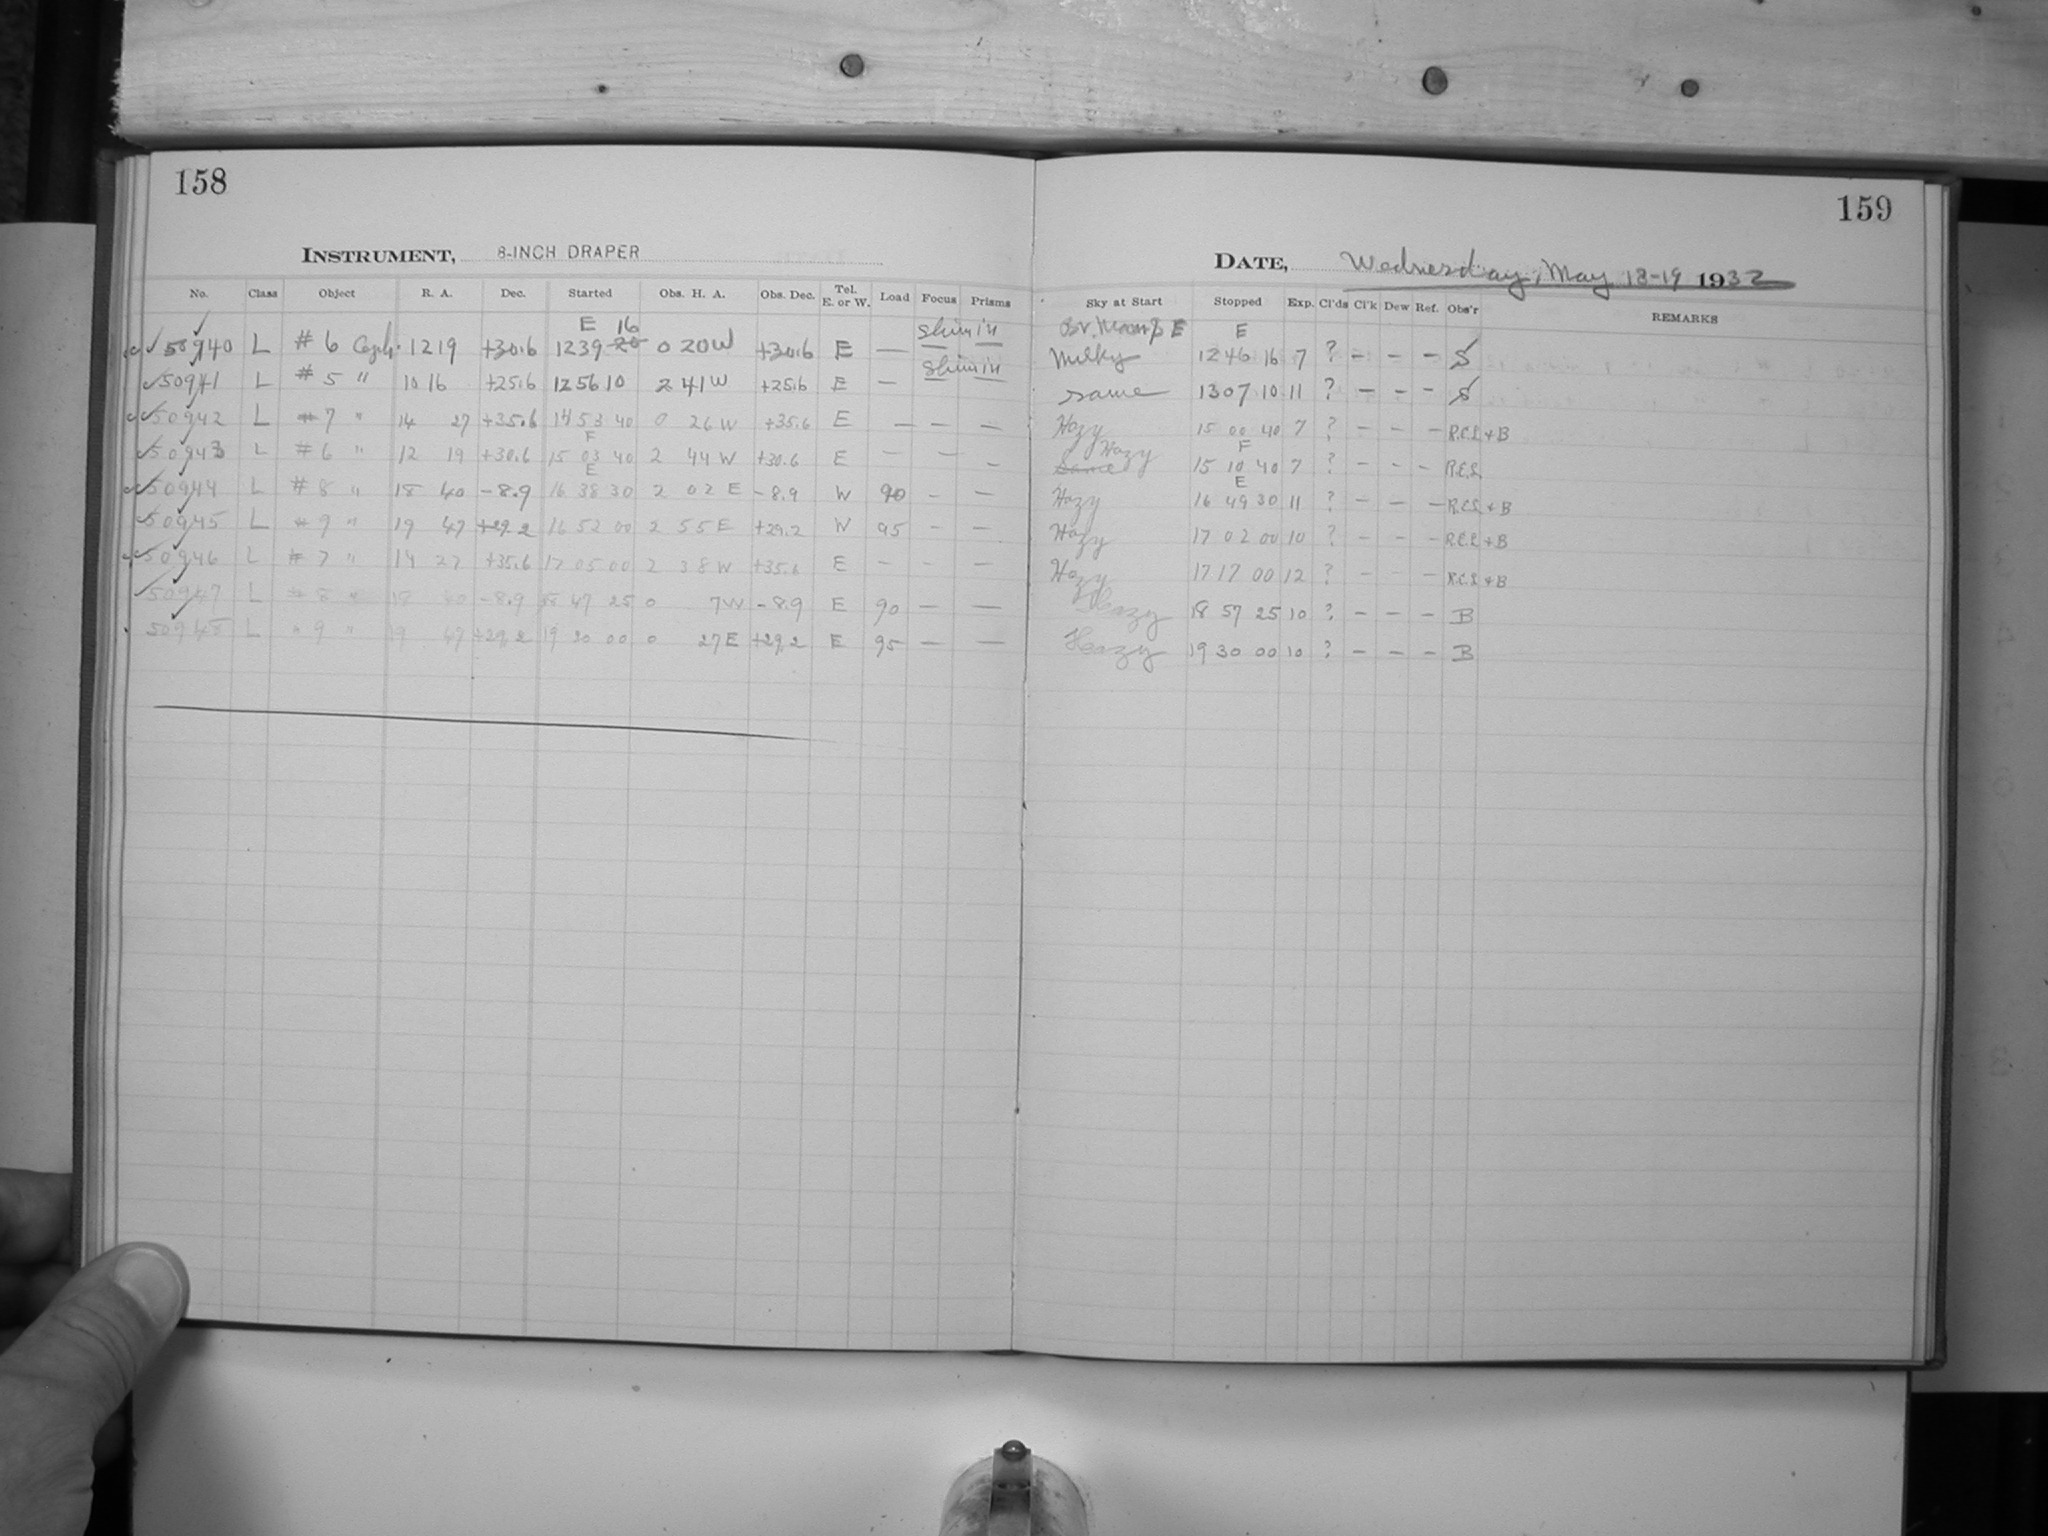 158
INSTRUMENT, 8-INCH DRAPER
No. Class Object R. A. Dec. Started Obs. H. A. Obs. Dec. Tel. E. or W. Load Focus Prisms
E 16 Shim in
50940 L # 6 1219 +30.6 1239 20 0 20W +30.6 E — — —
Shim in
50941 L # 5 " 10 16 +25.6 12 56 10 2 41 W +25.6 E — — —
50942 L # 7 " 14 27 +35.6 14 53 40 0 26 W +35.6 E — — —
F
50943 L # 6 " 12 19 +30.6 15 03 40 2 44 W +30.6 E — — —
E
50944 L # 8 " 18 40 -8.9 16 38 30 2 02 E -8.9 W 90 — —
50945 L # 9 " 19 47 +29.2 16 52 00 2 55 E +29.2 W 95 — —
50946 L # 7 " 14 27 +35.6 17 05 00 2 38 W +35.6 E — — —
50947 L # 8 " 18 40 -8.9 18 47 25 0 7W -8.9 E 90 — —
50948 L " 9 " 19 47 +29.2 19 20 00 0 27 E +29.2 E 95 — —
159
DATE, Wednesday, May 18-19 1932
Sky at Start Stopped Exp. Cl'ds Cl'k Dew Ref. Obs'r REMARKS
Br. Moon E E
Milky 12 46 16 7 ? — — — S
same 13 07 10 11 ? — — — S
Hazy 15 00 40 7 ? — — — R.C.S. + B
Hazy F
Same 15 10 40 7 ? — — — R.C.S.
E
Hazy 16 49 30 11 ? — — — R.C.S. + B
Hazy 17 02 00 10 ? — — — R.C.S. + B
Hazy 17 17 00 12 ? — — — R.C.S. + B
Hazy 18 57 25 10 ? — — — B
Hazy 19 30 00 10 ? — — — B